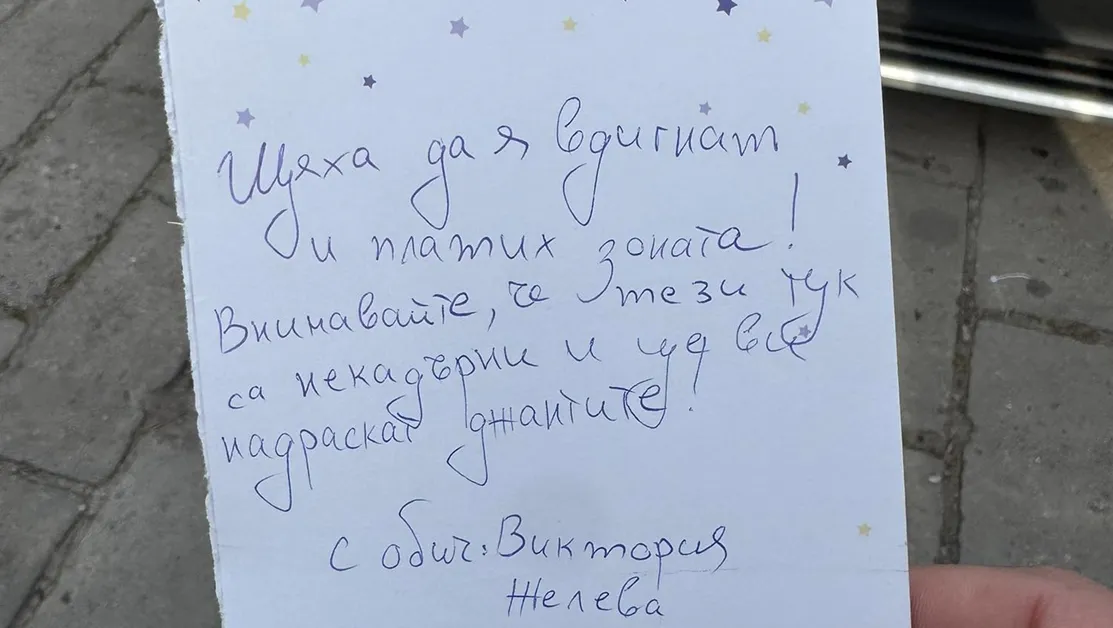 Щяха да я вдигнат
и платих зоната!
Внимавайте, че тези тук
са некадърни и ще все
надраскат джантите!
С обич: Виктория
Желева